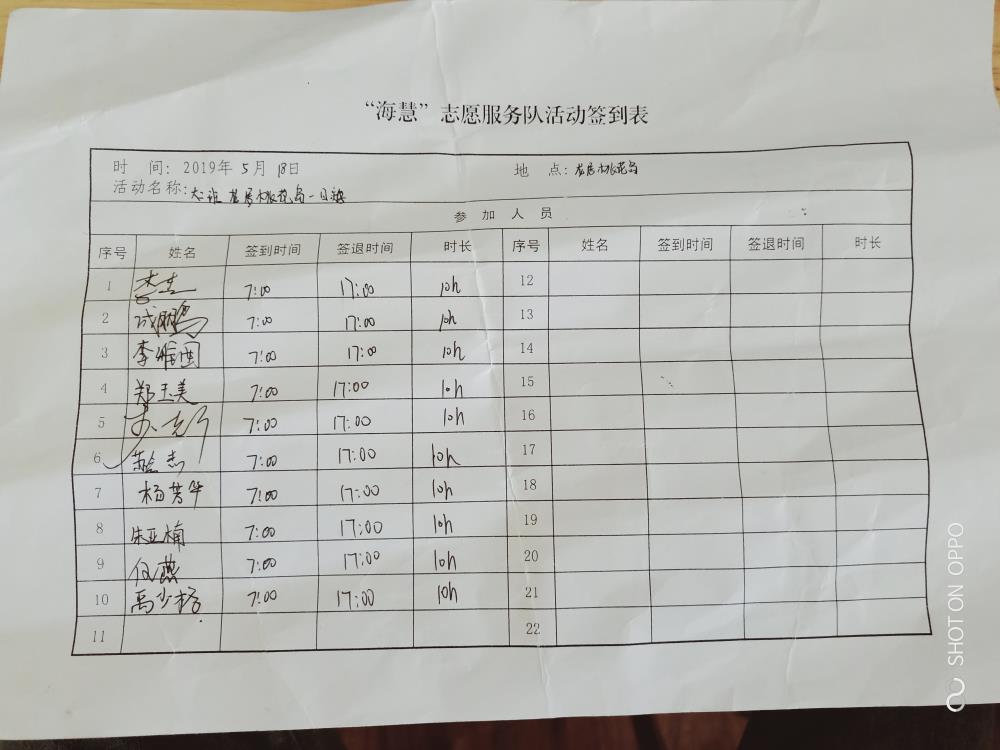 “海慧”志愿服务队活动签到表
时 间: 2019年 5月 18日 地 点: 桃花岛
活动名称: 桃花岛一日游
参 加 人 员
序号 姓名 签到时间 签退时间 时长 序号 姓名 签到时间 签退时间 时长
1 7:00 17:00 10h 12
2 7:00 17:00 10h 13
3 李雅囡 7:00 17:00 10h 14
4 郑玉美 7:00 17:00 10h 15
5 7:00 17:00 10h 16
6 7:00 17:00 10h 17
7 杨芳华 7:00 17:00 10h 18
8 朱亚楠 7:00 17:00 10h 19
9 任燕 7:00 17:00 10h 20
10 7:00 17:00 10h 21
11 22
SHOT ON OPPO